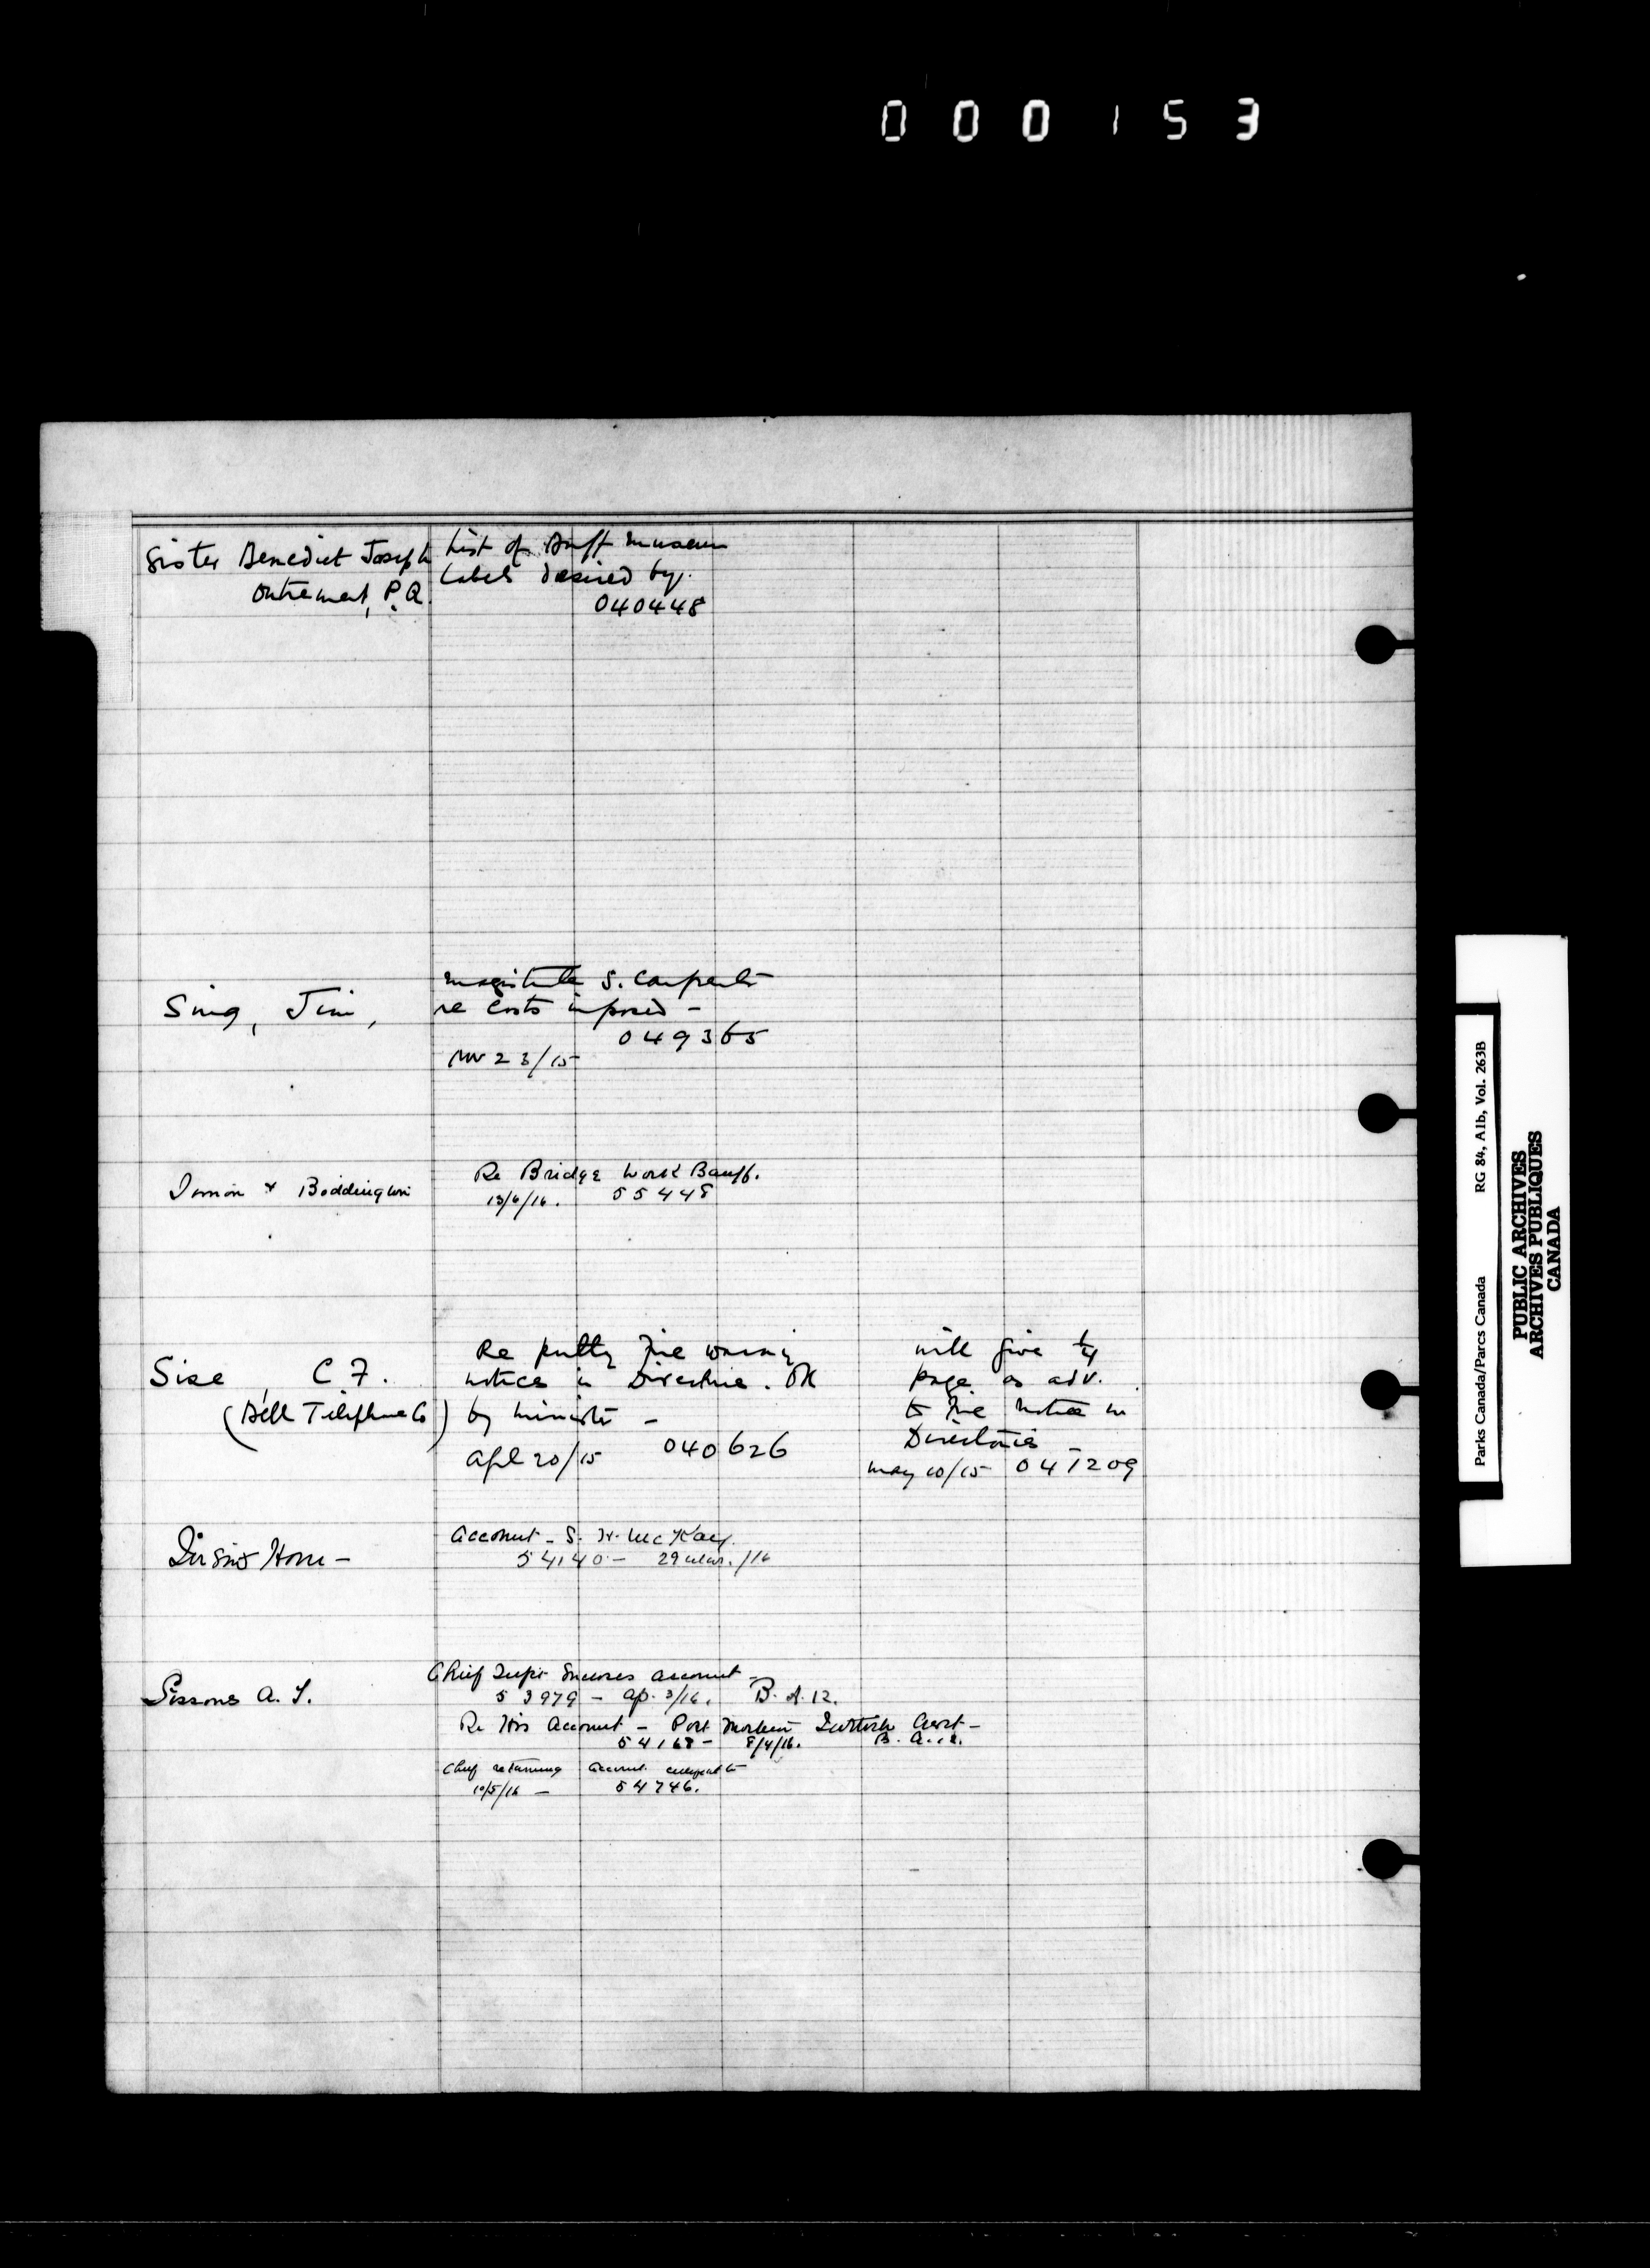 000153
Sister Benedict Joseph
Outremont, P.Q.
List of Banff Museum
Labels desired by.
040448
Sing, Jim,
Magistrate S. Carpenter
re costs imposed -
049365
Nov 23/15
& Boddington
Re Bridge Work Banff.
13/6/16. 55448
Sise, C F.
(Bell Telephone Co)
Re putting Fire warning
notices in Directories. OK
by Minister -
Apl 20/15 040626
will give 1/4
page as adv.
to Fire Notice in
Directories -
May 10/15 041209
Account - S. H. McKay.
54140 - 29 Mar./16
Sissons A. T.
Chief Supt encloses account -
53979 - Ap. 3/16. B. A. 12.
Re His Account - Post Mortem
54168 - 8/4/16. B. A. 12.
Chief returning account
10/5/16 - 54746.
Parks Canada/Parcs Canada RG 84, A1b, Vol. 263B
PUBLIC ARCHIVES
ARCHIVES PUBLIQUES
CANADA